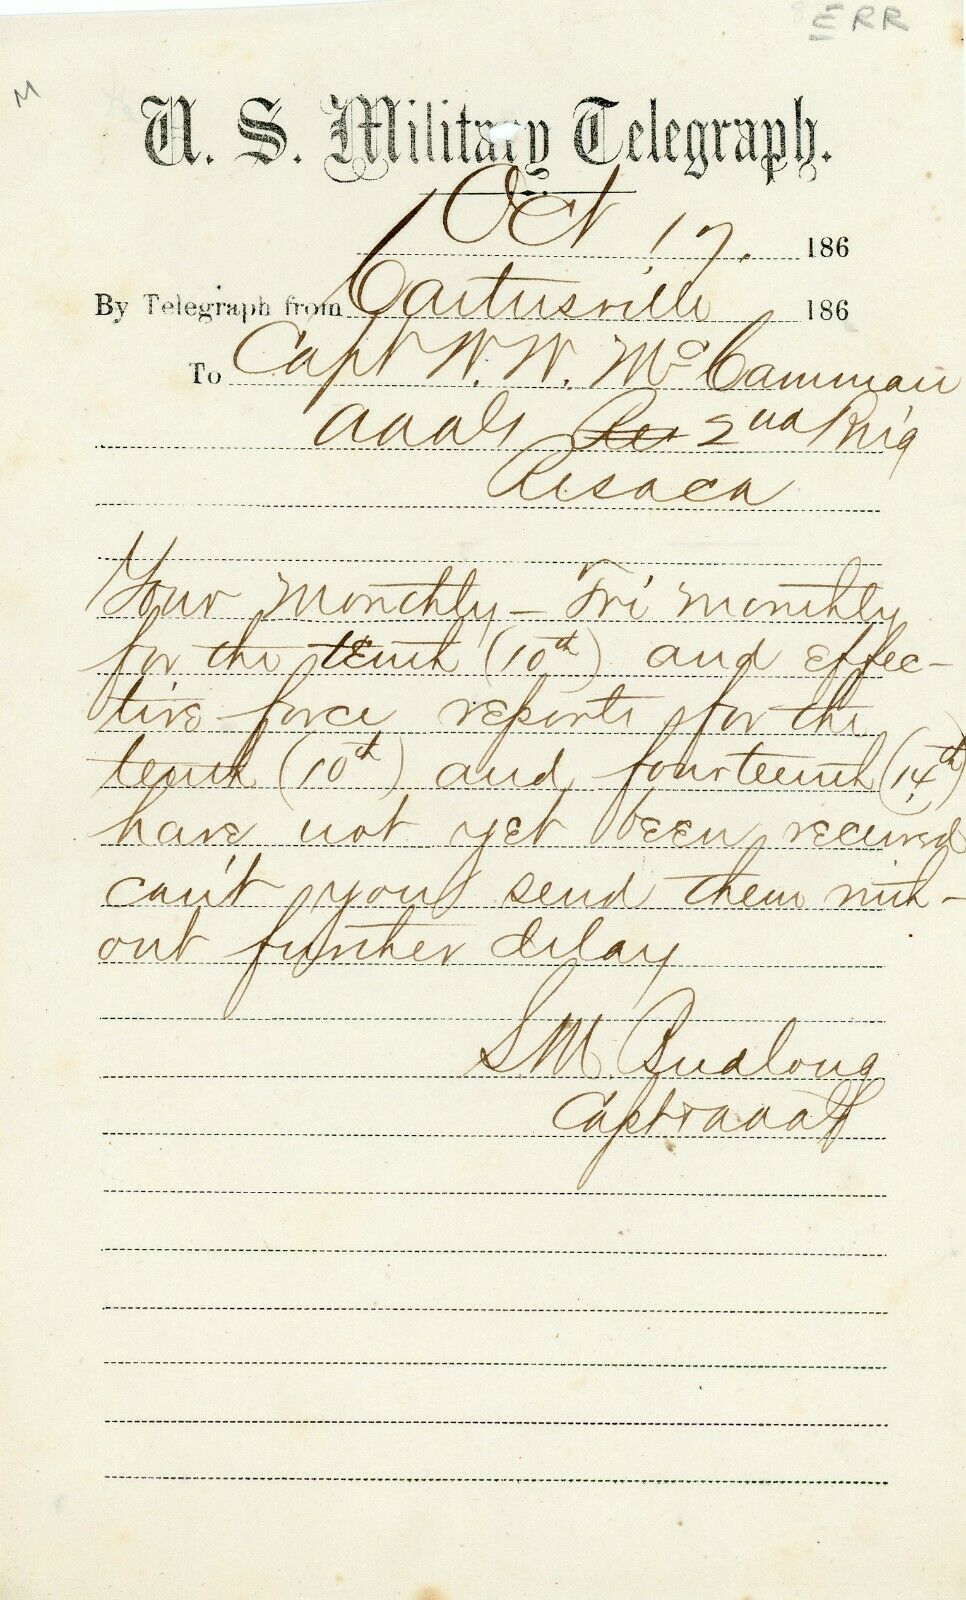 ERR
M
U. S. Military Telegraph.
Oct 17. 186
By Telegraph from Cartersville 186
To Capt W. W. McCammon
aaag 2nd Brig
Resaca
Your monthly - Tri monthly
for the tenth (10th) and effec-
tive force reports for the
tenth (10th) and fourteenth (14th)
have not yet been received
can't you send them with-
out further delay
S.M. Budlong
Capt & aaag